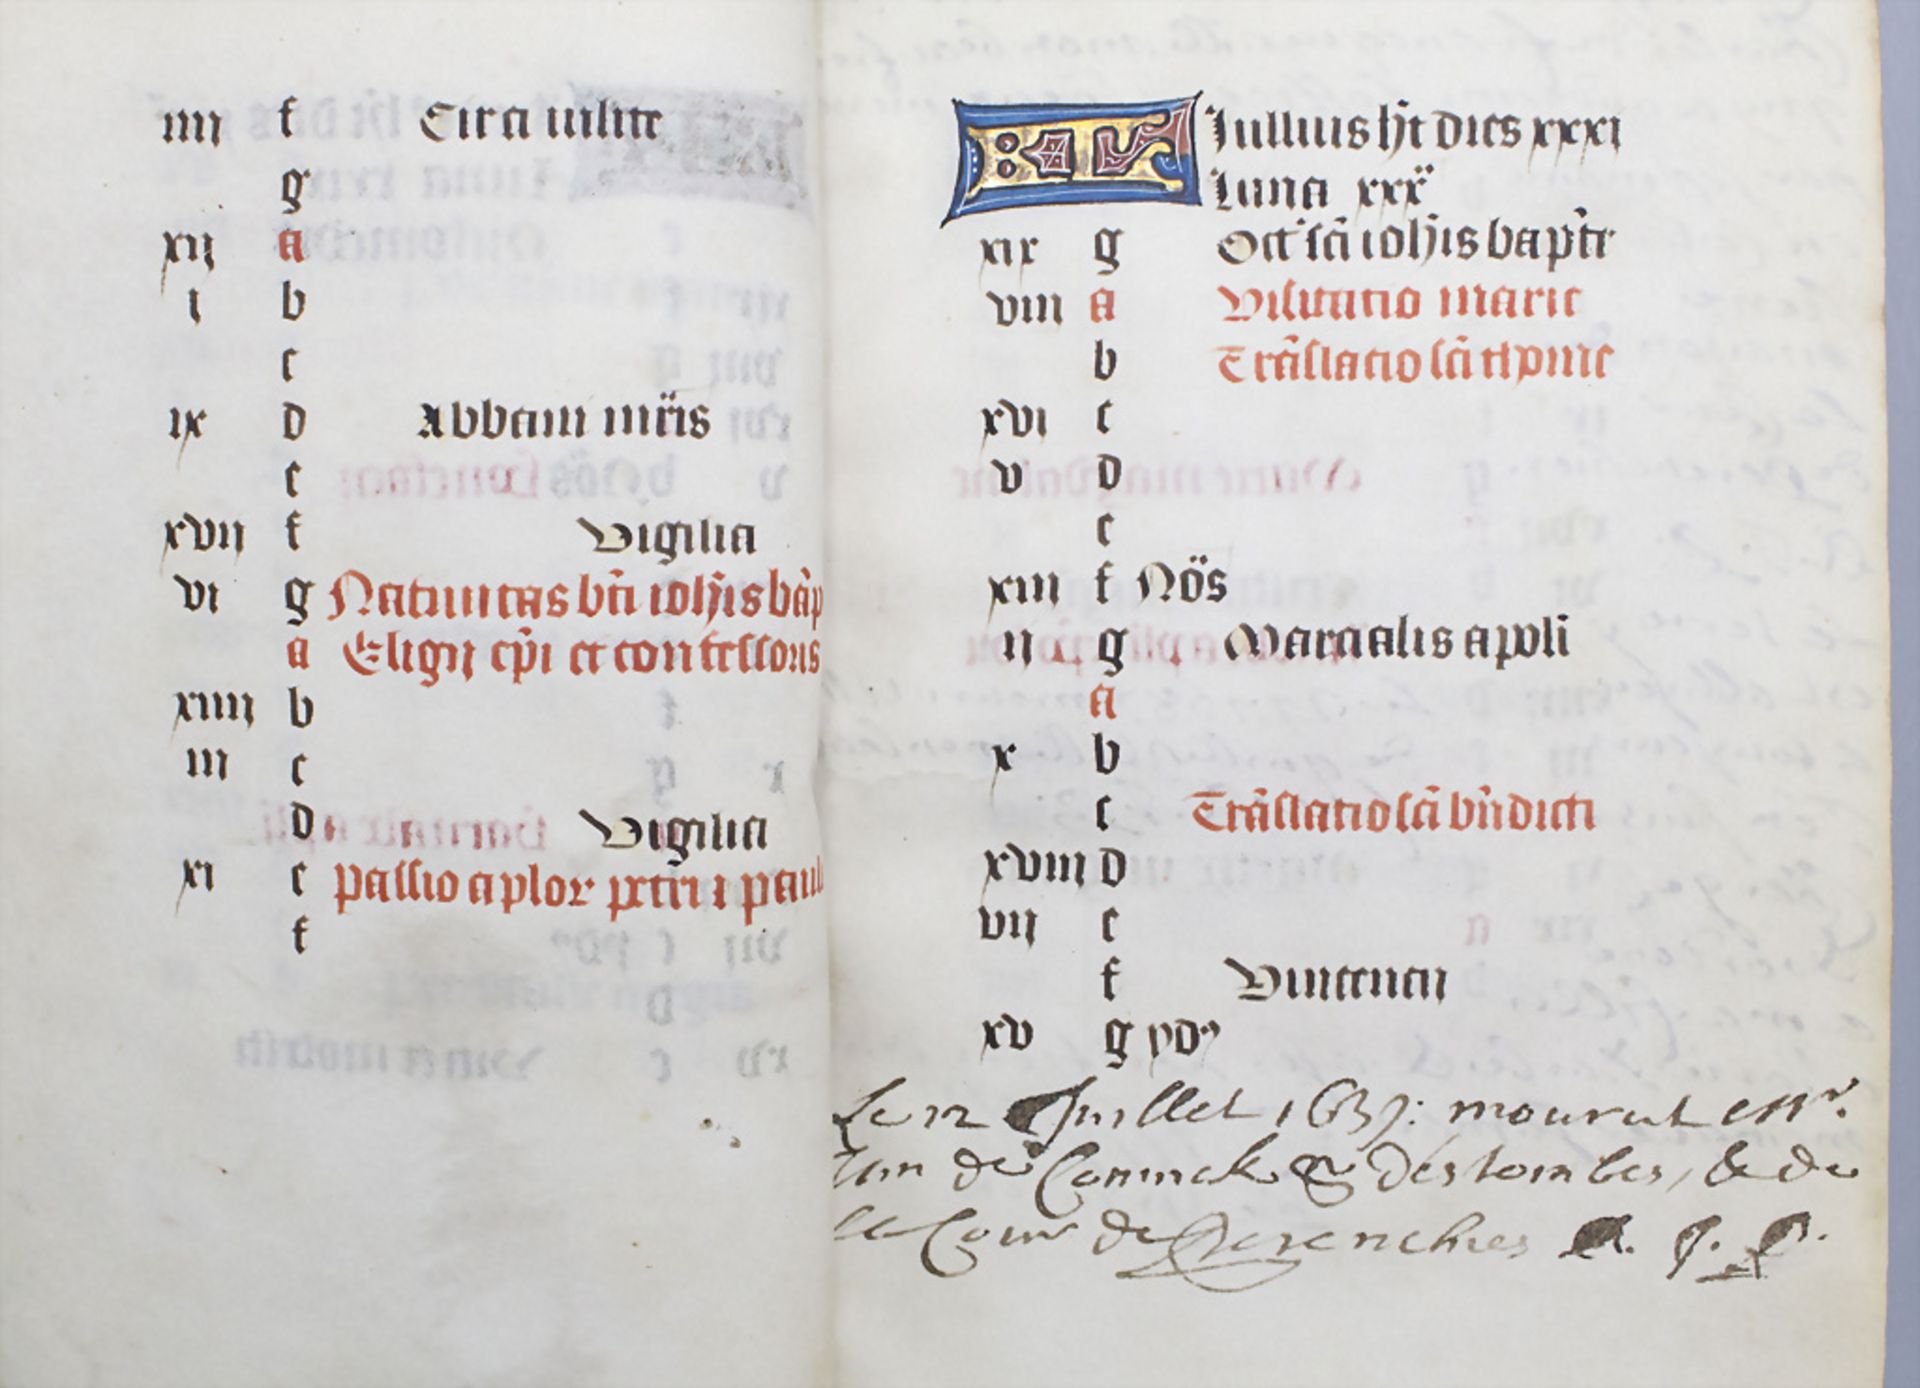 iiii f Cirici iulite
g
xii a
i b
c
ix d Albani mr̄is
e
xvii f Vigilia
vi g Natiuitas bt̄i ioh̄is bap̄
a Eligij ep̄i et confessoris
xiiii b
iii c
d Vigilia
xi e Passio aplor petri ⁊ paul
f
KL Iullius h̄t dies xxxi
Luna xxx
xix g Oct' sc̄i ioh̄is bap̄te
viii a Visitatio marie
b Trāslatio sc̄i
xvi c
v d
e
xiii f Nōs
ii g Marcialis apl̄i
a
x b
c Trāslatio sc̄i bn̄dicti
xviii d
vii e
f Vincencii
xv g ydꝰ
Le 12 Juillet 163 : mourut
de Coninck & destombes, & de
le Cour de